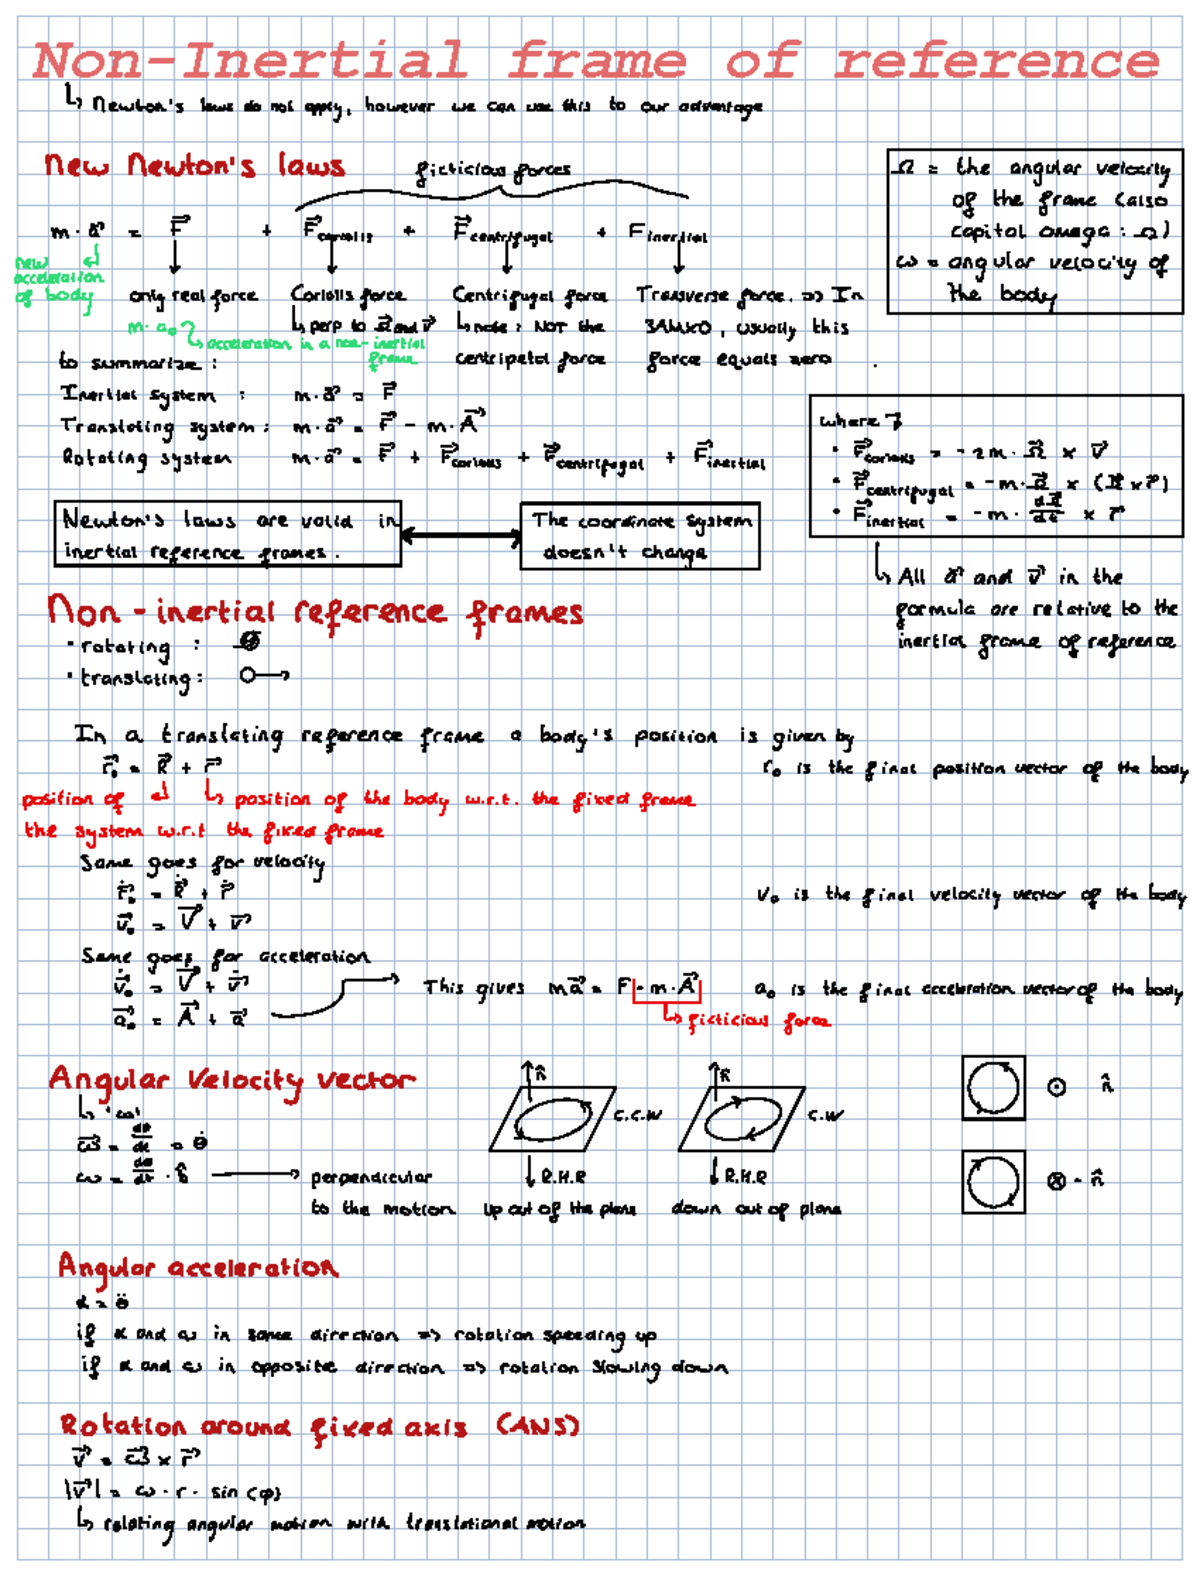 Non-Inertial frame of reference
↳ Newton's laws do not apply, however we can use this to our advantage
New Newton's laws
ficticious forces
m · a⃗ = F⃗ + F⃗coriolis + F⃗centrifugal + Finertial
new acceleration of body
only real force
m · a₀ ↳ acceleration in a non-inertial frame
Coriolis force
↳ perp to Ω⃗ and v⃗
Centrifugal force
↳ note: NOT the
centripetal force
Transverse force. => In
3AMX0, usually this
force equals zero.
Ω = the angular velocity
of the frame (also
capital omega: Ω)
ω = angular velocity of
the body
to summarize:
Inertial system : m · a⃗ = F⃗
Translating system: m · a⃗ = F⃗ - m · A⃗
Rotating system m · a⃗ = F⃗ + F⃗coriolis + F⃗centrifugal + F⃗inertial
where
· F⃗coriolis = -2m · Ω⃗ × v⃗
· F⃗centrifugal = -m · Ω⃗ × (Ω⃗ × r⃗)
· F⃗inertial = -m · dΩ⃗/dt × r⃗
↳ All a⃗ and v⃗ in the
formula are relative to the
inertial frame of reference
Newton's laws are valid in
inertial reference frames.
The coordinate system
doesn't change
Non-inertial reference frames
· rotating :
· translating:
In a translating reference frame a body's position is given by
r⃗₀ = R⃗ + r⃗
r₀ is the final position vector of the body
position of ↳ position of the body w.r.t. the fixed frame
the system w.r.t the fixed frame
Same goes for velocity
ṙ⃗₀ = Ṙ⃗ + ṙ⃗
v₀ is the final velocity vector of the body
v⃗₀ = V⃗ + v⃗
Same goes for acceleration
v̇⃗₀ = V̇⃗ + v̇⃗
This gives ma⃗ = F - m · A⃗
a₀ is the final acceleration vector of the body
a⃗₀ = A⃗ + a⃗
↳ ficticious force
Angular Velocity vector
↳ 'ω'
ω⃗ = dθ/dt = θ̇
ω = dθ/dt · θ̂ → perpendicular
to the motion
n̂
C.C.W
↓ R.H.R
up out of the plane
n̂
C.W
↓ R.H.R
down out of plane
⊙ n̂
⊗ - n̂
Angular acceleration
α = θ̈
if α and ω in same direction => rotation speeding up
if α and ω in opposite direction => rotation slowing down
Rotation around fixed axis (ANS)
v⃗ = ω⃗ × r⃗
|v⃗| = ω · r · sin (φ)
↳ relating angular motion with translational motion